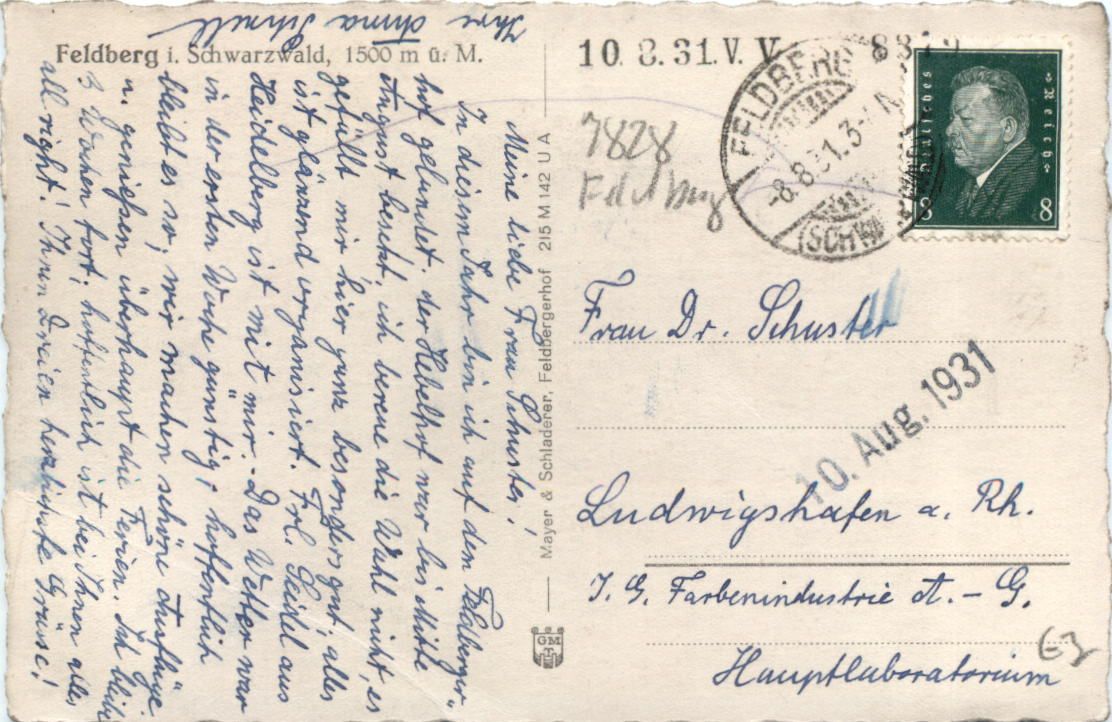 Feldberg i. Schwarzwald, 1500 m ü. M.
Meine liebe Frau Schuster!
In diesem Jahr bin ich auf dem Feldberger-
hof gelandet. Der Hebelhof war bis Mitte
August besetzt, ich bereue die Wahl nicht, es
gefällt mir hier ganz besonders gut, alles
ist glänzend organisiert. Frl. Seidel aus
Heidelberg ist mit mir. – Das Wetter war
in der ersten Woche günstig; hoffentlich
bleibt es so, wir machen schöne Ausflüge
u. genießen überhaupt die Ferien. Ich bleibe
3 Wochen fort; hoffentlich ist bei Ihnen alles
all right! Ihnen Dreien herzlichste Grüsse!
Ihre Anna Schnell
Mayer & Schladerer, Feldbergerhof 215 M 142 U A
GM
T
10. 8. 31. V. V
8819
7828
Feldberg
FELDBERG
-8.8.31.3-4 N
(SCHW
Deutsches Reich
8 8
Frau Dr. Schuster
10. Aug. 1931
Ludwigshafen a. Rh.
I. G. Farbenindustrie A. – G.
Hauptlaboratorium